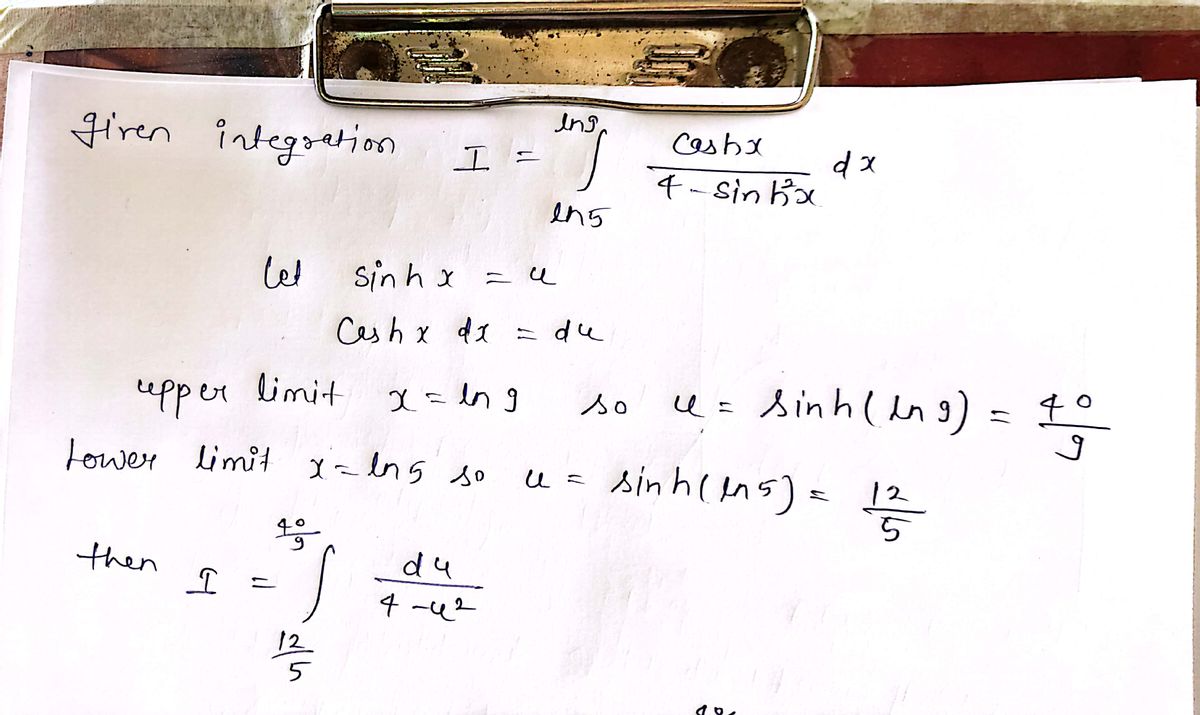 given integration I = ∫_{ln5}^{ln9} coshx / (4 - sinh²x) dx
let sinh x = u
cosh x dx = du
upper limit x = ln 9 so u = sinh(ln 9) = 40/9
Lower limit x = ln 5 so u = sinh(ln 5) = 12/5
then I = ∫_{12/5}^{40/9} du / (4 - u²)